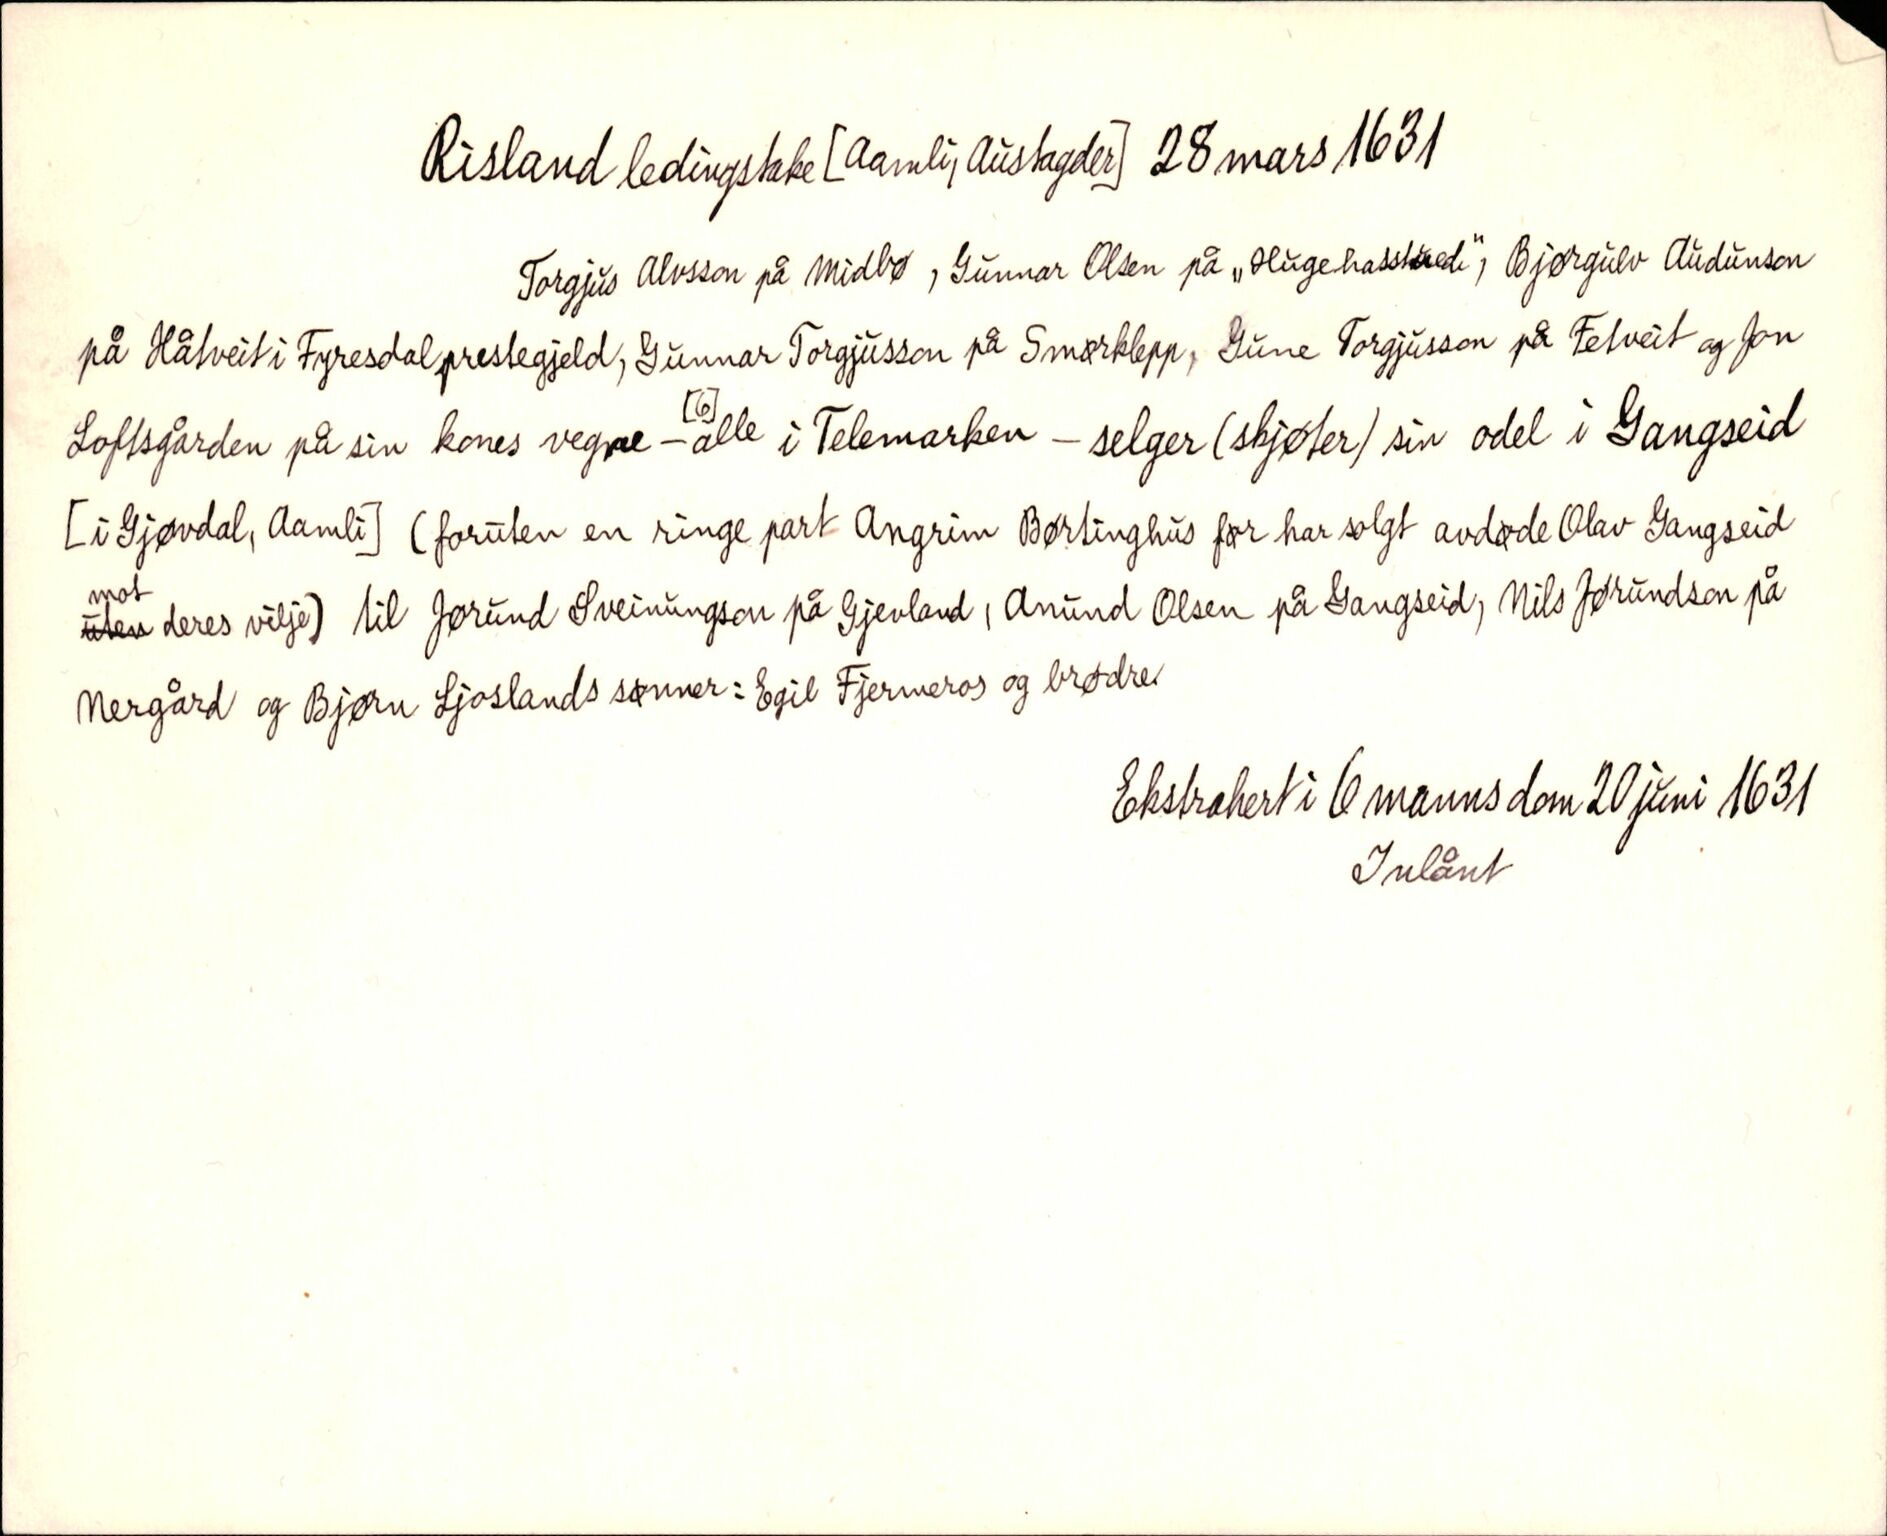 Risland ledingstake [Aamli, Austagder] 28 mars 1631
Torgjus Alvsson på Midbø, Gunnar Olsen på „Hugehasstredi", Bjørgulv Audunson
på Håtveit i Fyresdal prestegjeld, Gunnar Torgjusson på Smørklepp, Gune Torgjusson på Fetveit og Jon
Loftsgården på sin kones vegne – [6] alle i Telemarken – selger (skjøter) sin odel i Gangseid
[i Gjøvdal, Aamli] (foruten en ringe part Angrim Børtinghus før har solgt avdøde Olav Gangseid
mot
uten deres vilje) til Jørund Sveinungson på Gjevland, Anund Olsen på Gangseid, Nils Jørundson på
Nergård og Bjørn Ljoslands sønner: Egil Fjermeros og brødre.
Ekstrahert i 6 manns dom 20 juni 1631
Inlånt